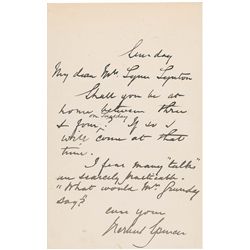 My dear Mrs Lynn Lynton
Shall you be at
home between three
on Tuesday
& four. If so I
will come at that
time.
I fear many "talks"
are scarcely practicable.
"What would Mrs Grundy
say?"
ever yours
Herbert Spencer